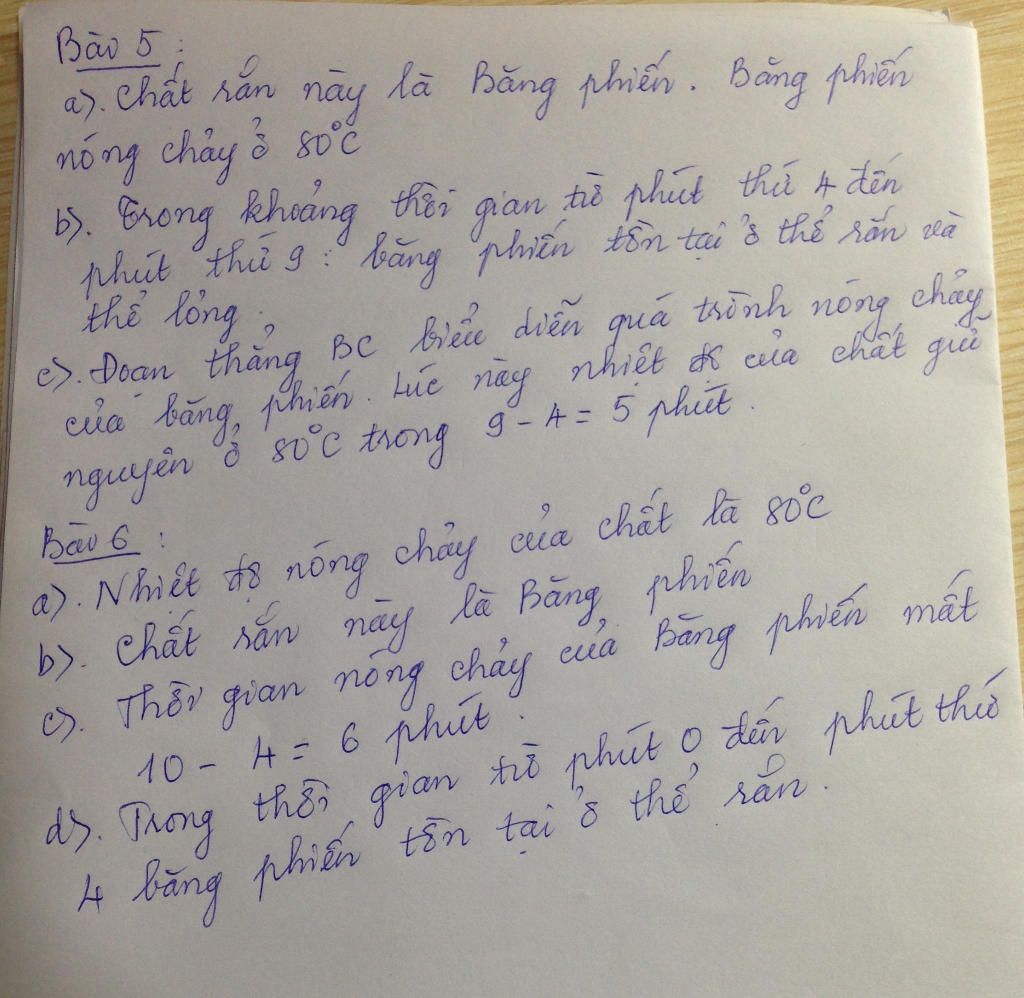 Bài 5 :
a). Chất rắn này là Băng phiến. Băng phiến
nóng chảy ở 80°C
b). Trong khoảng thời gian từ phút thứ 4 đến
phút thứ 9 : băng phiến tồn tại ở thể rắn và
thể lỏng.
c). Đoạn thẳng BC biểu diễn quá trình nóng chảy
của băng phiến. Lúc này nhiệt độ của chất giữ
nguyên ở 80°C trong 9 - 4 = 5 phút.
Bài 6 :
a). Nhiệt độ nóng chảy của chất là 80°C
b). Chất rắn này là Băng phiến
c). Thời gian nóng chảy của Băng phiến mất
10 - 4 = 6 phút.
d). Trong thời gian từ phút 0 đến phút thứ
4 băng phiến tồn tại ở thể rắn.